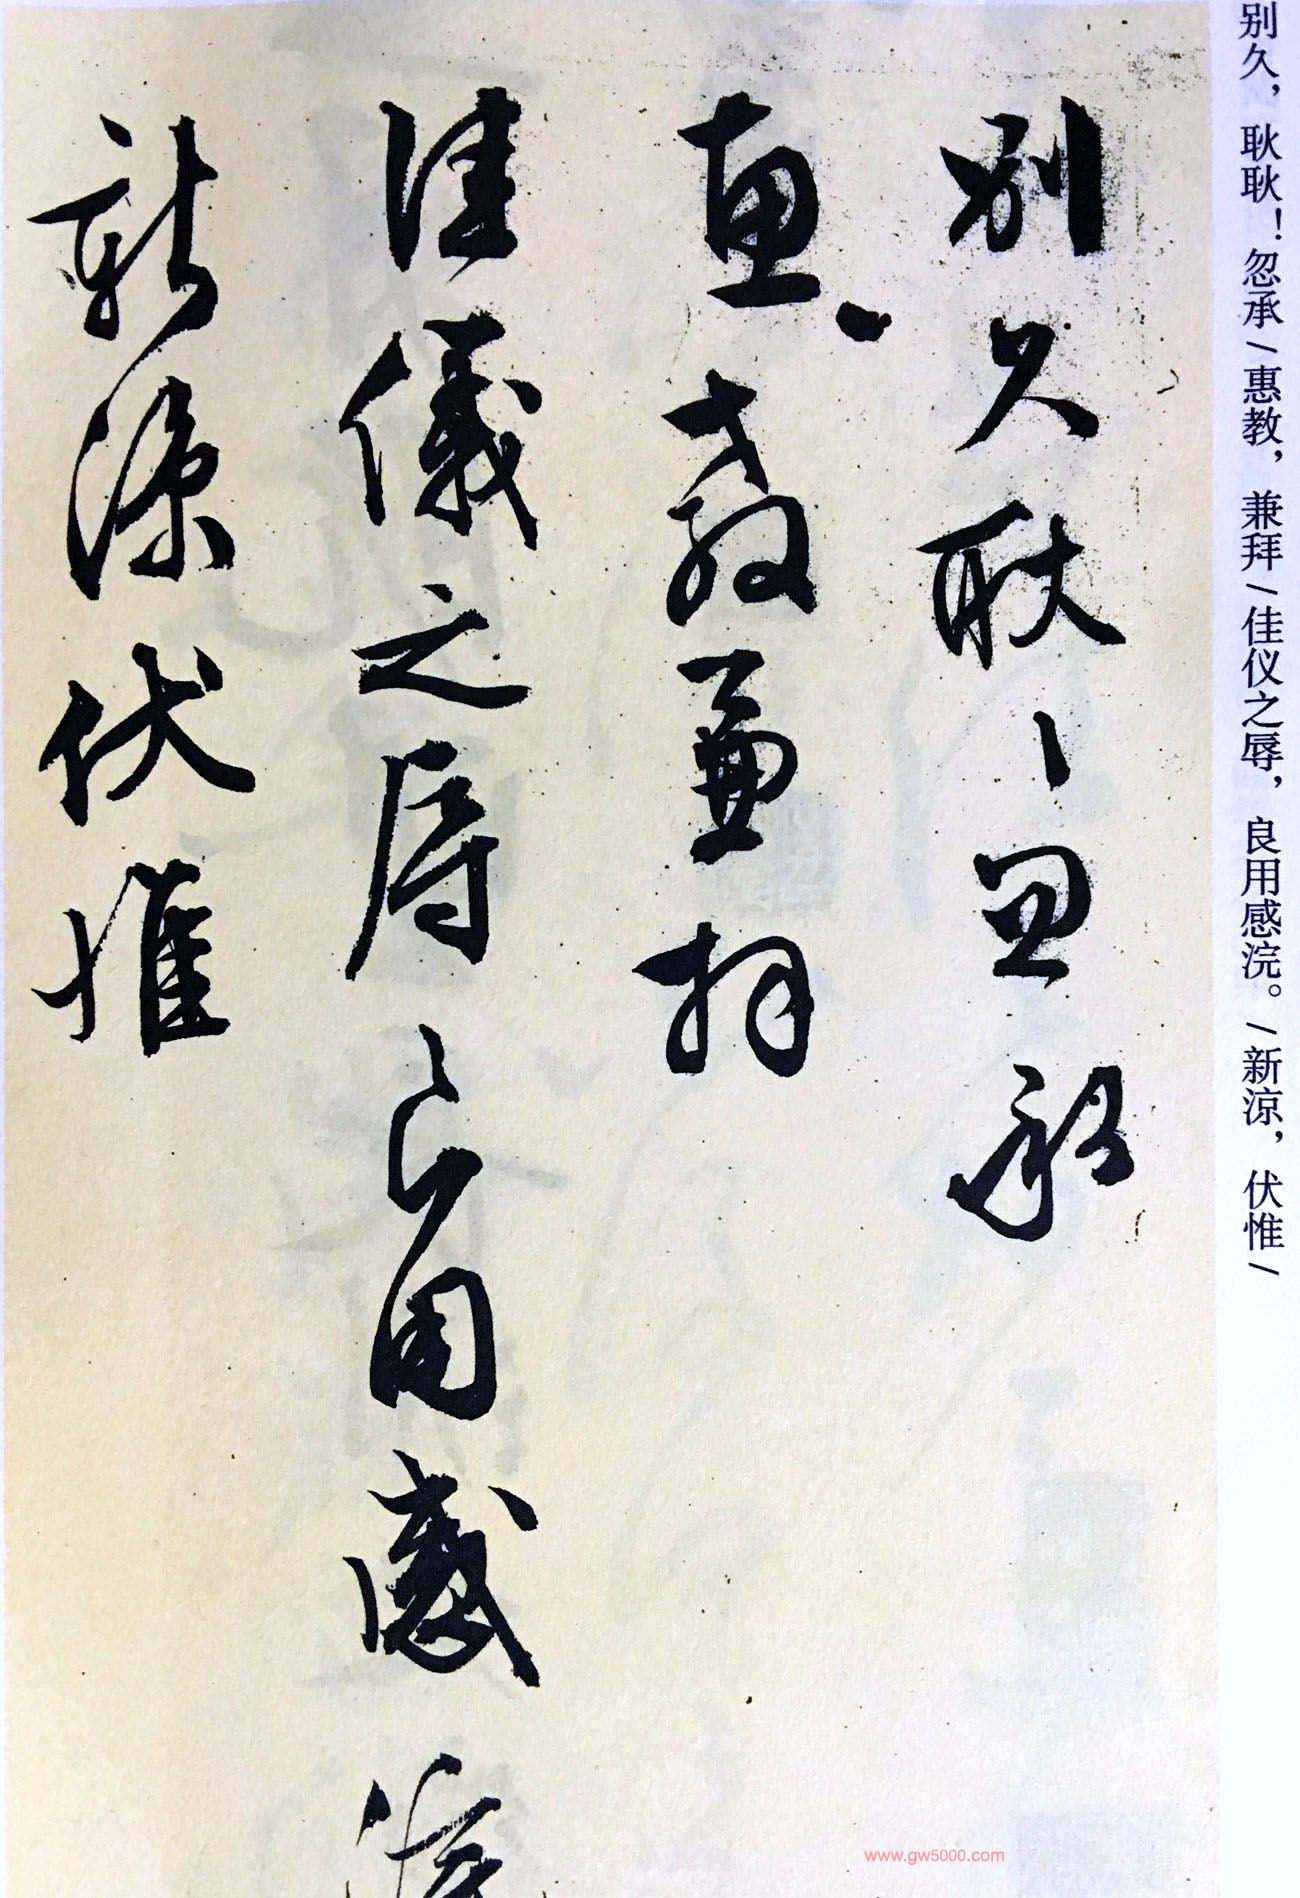 别久，耿耿！忽承/惠教，兼拜/佳仪之辱，良用感浣。/新凉，伏惟/
别久耿〻忽承
惠教兼拜
佳儀之辱良用感浣
新涼伏惟
www.gw5000.com